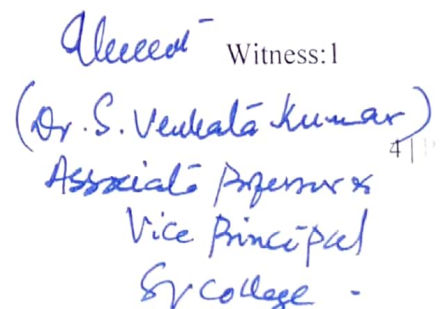 Witness:1
(Dr. S. Venkata Kumar)
4|
Associate professor &
Vice Principal
SV College .